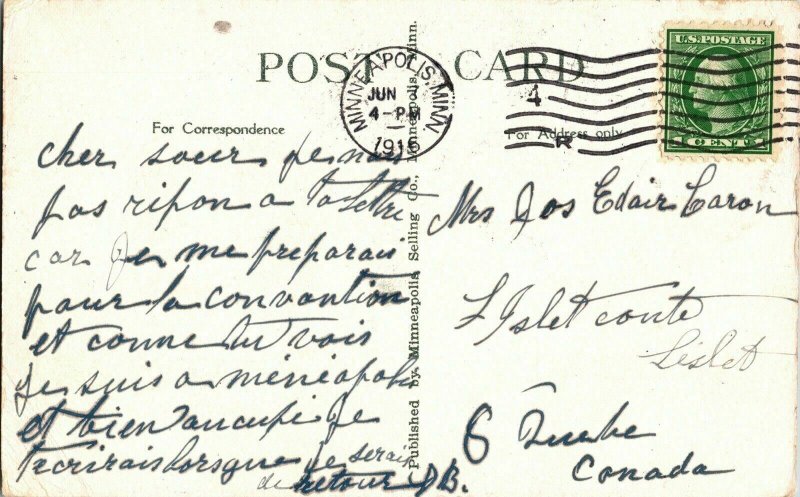 POST CARD
U.S. POSTAGE
1 CENT 1
MINNEAPOLIS, MINN.
JUN
4-PM
1916
4
R
For Correspondence
For Address only
cher soeur je
pas ripon a ta lettre
car je me preparais
pour la convantion
et comne tu vois
je suis a ménéapolis
et bien aucupé je
tecrirais lorsque je serais
de retour DB.
Mrs Jos Edair Caron
L'Islet conte
Lislet
Quebe
Canada
Published by Minneapolis Selling Co., Minneapolis, Minn.